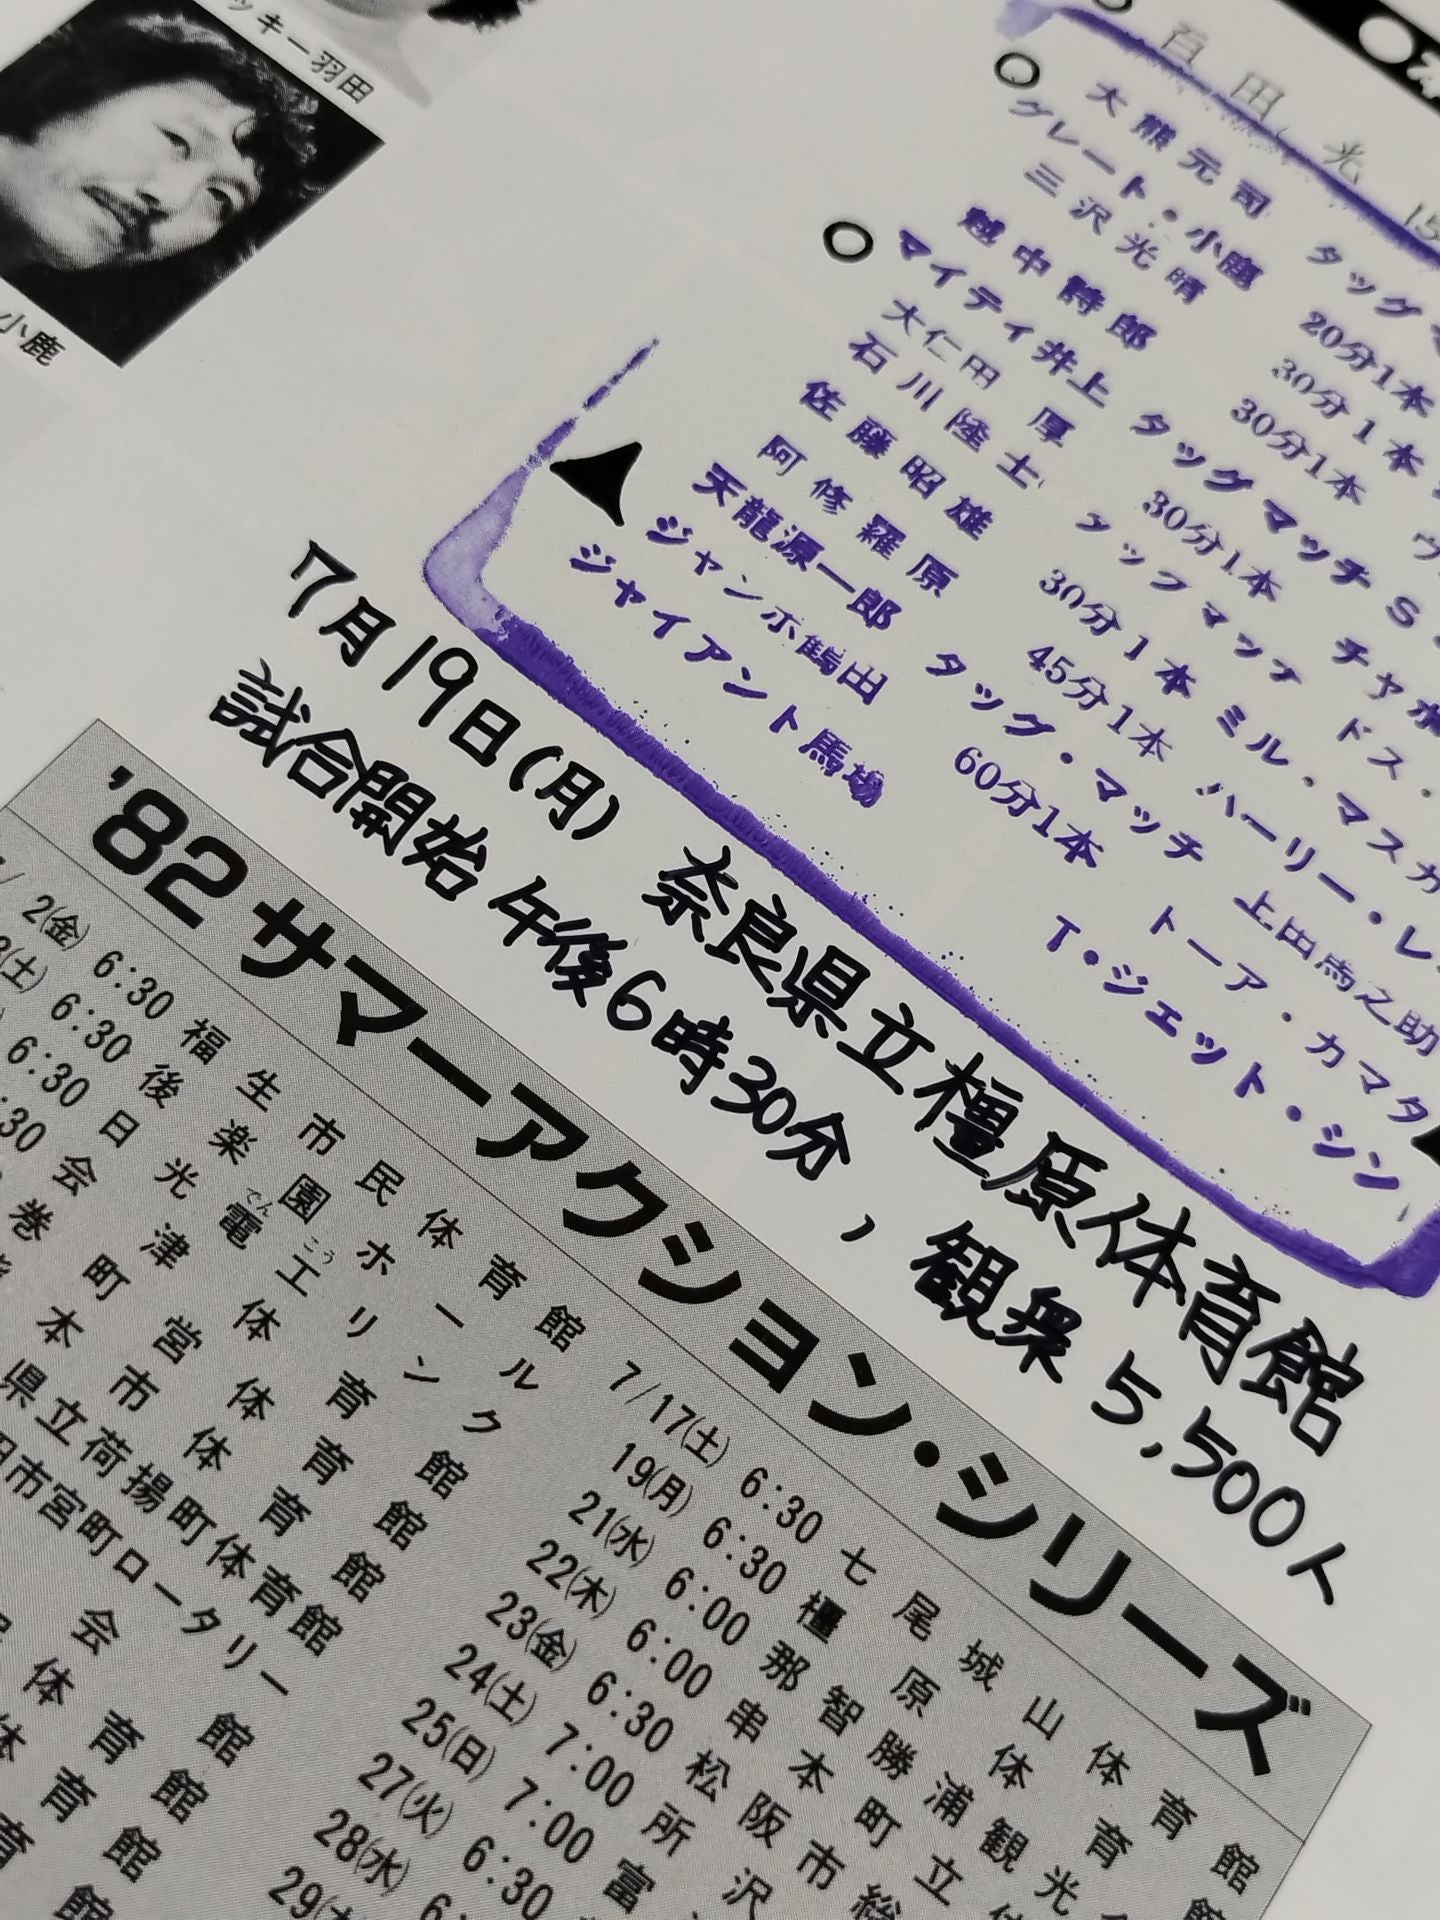 ッキー羽田
小鹿
百田光
大熊元司
グレート・小鹿 タッグマ
三沢光晴 20分1本
越中詩郎 30分1本
マイティ井上 30分1本
大仁田 厚 タッグマッチ S
石川隆士 30分1本 チャボ
佐藤昭雄 タッグマッチ ドス・
阿修羅原 30分1本 ミル・マスカ
天龍源一郎 45分1本 ハーリー・レ
ジャンボ鶴田 タッグ・マッチ 上田馬之助
ジャイアント馬場 60分1本 トーア・カマタ
T・ジェット・シン
7月19日(月) 奈良県立橿原体育館
試合開始 午後6時30分, 観衆 5,500人
'82 サマーアクション・シリーズ
2(金) 6:30 福生市民体育館
3(土) 6:30 後楽園ホール
6:30 日光電工リンク
でんこう
:30 会津体育館
巻町営体育館
本市体育館
県立荷揚町体育館
田市宮町ロータリー
会館
体育館
体育館
育館
7/17(土) 6:30 七尾城山体育館
19(月) 6:30 橿原体育館
21(水) 6:00 那智勝浦観光
22(木) 6:00 串本町立体
23(金) 6:30 松阪市総
24(土) 7:00 所沢
25(日) 7:00 富
27(火) 6:30
28(水) 6
29(木